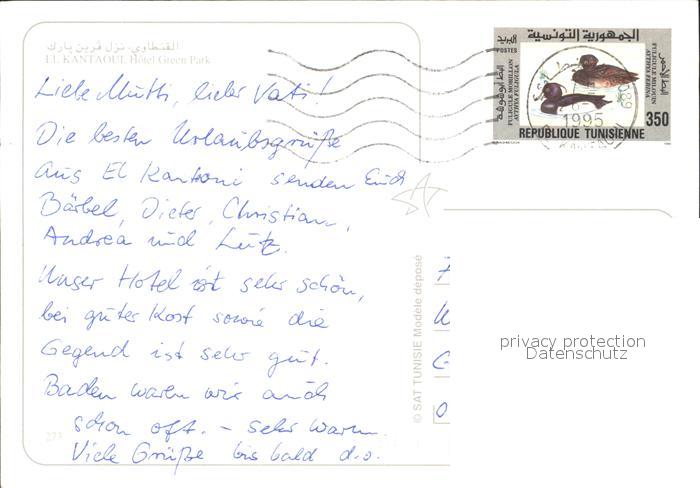 القنطاوي - نزل ڤرين پارك
EL KANTAOUI Hôtel Green Park
Liebe Mutti, lieber Vati!
Die besten Urlaubsgrüße
aus El Kantoni senden Euch
Bärbel, Dieter, Christian,
Andrea und Lutz.
Unser Hotel ist sehr schön,
bei guter Kost sowie die
Gegend ist sehr gut.
Baden waren wir auch
schon oft. – sehr warm.
Viele Grüße bis bald d.o.
273
© SAT TUNISIE Modèle déposé
الجمهورية التونسية
البريد
POSTES
FULIGULE MORILLON
AYTHYA FULIGULA
FULIGULE MILOUIN
AYTHYA FERINA
1995
350
REPUBLIQUE TUNISIENNE
privacy protection
Datenschutz